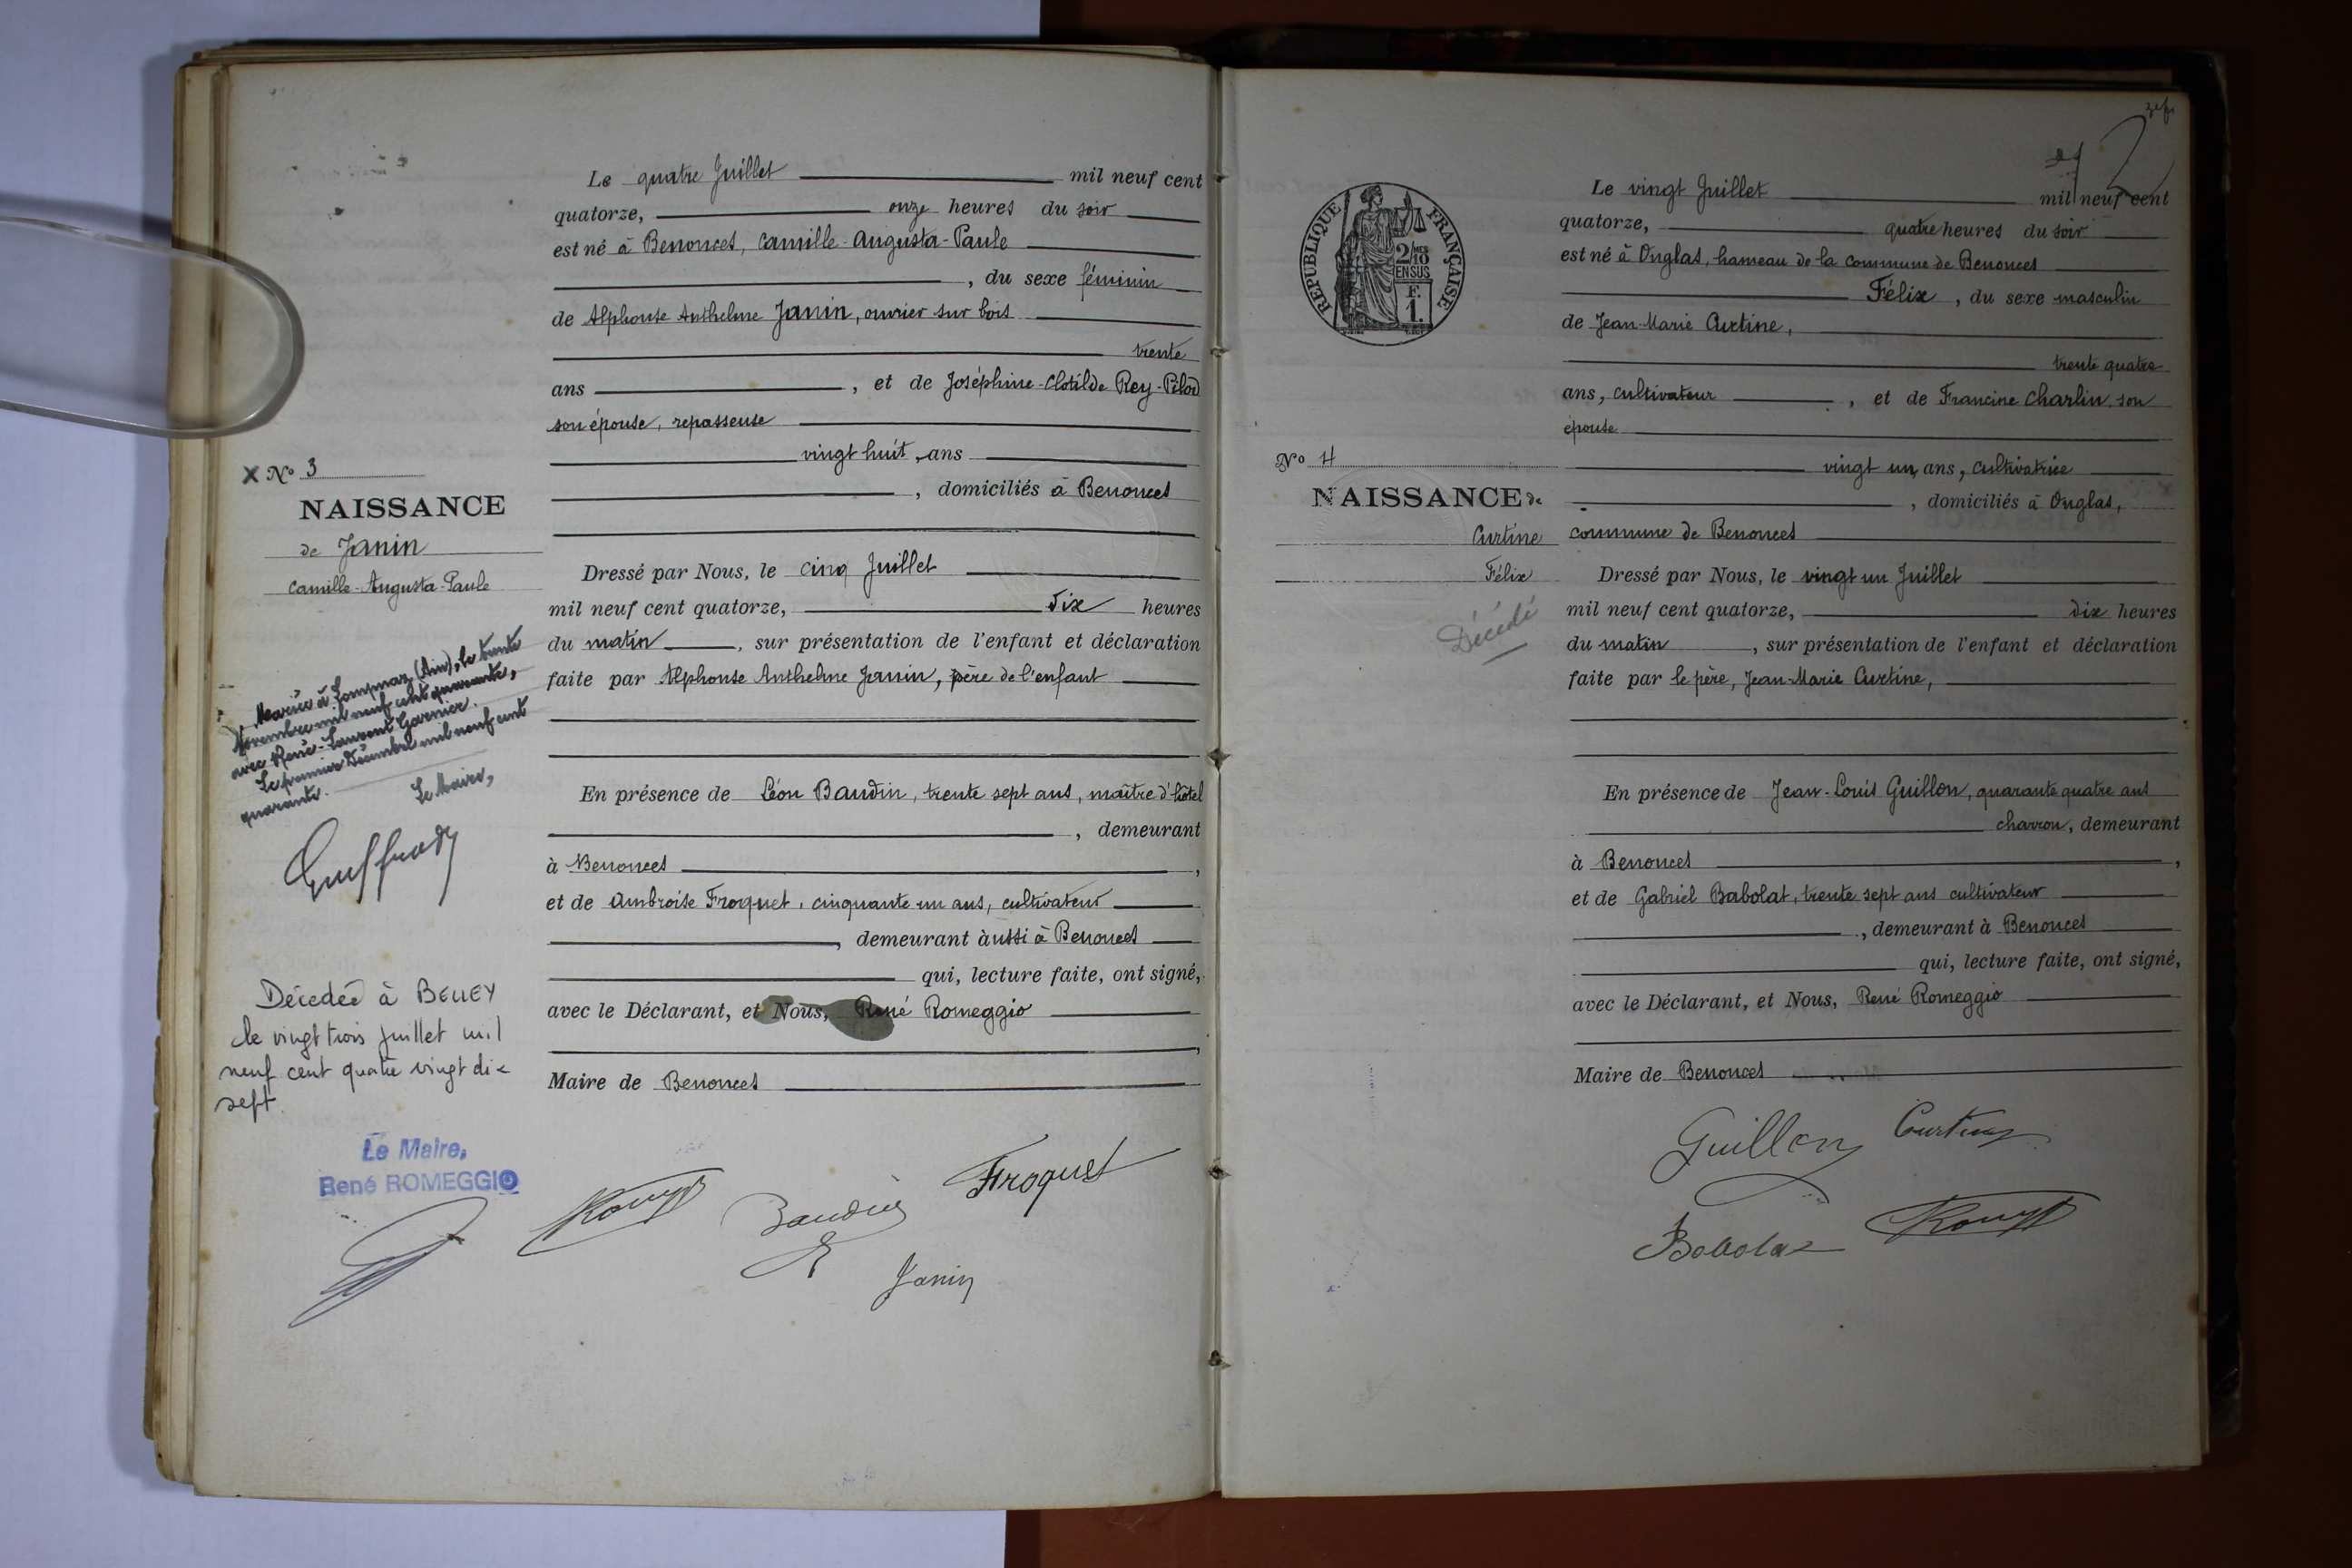 Le quatre Juillet mil neuf cent
quatorze, onze heures du soir
est né à Benonces, Camille-Augusta-Paule
, du sexe féminin
de Alphonse Anthelme Janin, ouvrier sur bois
trente
ans , et de Joséphine-Clotilde Rey-Pilod
son épouse, repasseuse
vingt huit, ans
, domiciliés à Benonces
X No 3
NAISSANCE
de Janin
Camille-Augusta-Paule
Dressé par Nous, le cinq Juillet
mil neuf cent quatorze, dix heures
du matin , sur présentation de l'enfant et déclaration
faite par Alphonse Anthelme Janin, père de l'enfant
Mariée à Lompnaz (Ain), le trente
Novembre mil neuf cent quarante,
avec René-Laurent Garnier.
Le premier Décembre mil neuf cent
quarante.
Le Maire,
En présence de Léon Baudin, trente sept ans, maître d'hôtel
, demeurant
à Benonces ,
et de Ambroise Froquet, cinquante un ans, cultivateur
, demeurant aussi à Benonces
qui, lecture faite, ont signé,
avec le Déclarant, et Nous, René Romeggio
,
Maire de Benonces
Décedée à BELLEY
le vingt trois juillet mil
neuf cent quatre vingt dix
sept.
Le Maire,
René ROMEGGIO
Baudin
Froquet
Janin
2
RÉPUBLIQUE FRANÇAISE
2/10
EN SUS
F.
1.
Le vingt Juillet mil neuf cent
quatorze, quatre heures du soir
est né à Onglas, hameau de la commune de Benonces
Félix , du sexe masculin
de Jean-Marie Curtine,
trente quatre
ans, cultivateur , et de Francine Charlin son
épouse
vingt un, ans, cultivatrice
, domiciliés à Onglas,
commune de Benonces
No 4
NAISSANCE de
Curtine
Félix
Décédé
Dressé par Nous, le vingt un Juillet
mil neuf cent quatorze, dix heures
du matin , sur présentation de l'enfant et déclaration
faite par le père, Jean-Marie Curtine,
En présence de Jean-Louis Guillon, quarante quatre ans
charron, demeurant
à Benonces ,
et de Gabriel Babolat, trente sept ans cultivateur
, demeurant à Benonces
qui, lecture faite, ont signé,
avec le Déclarant, et Nous, René Romeggio
Maire de Benonces
Guillon Curtine
Babolat